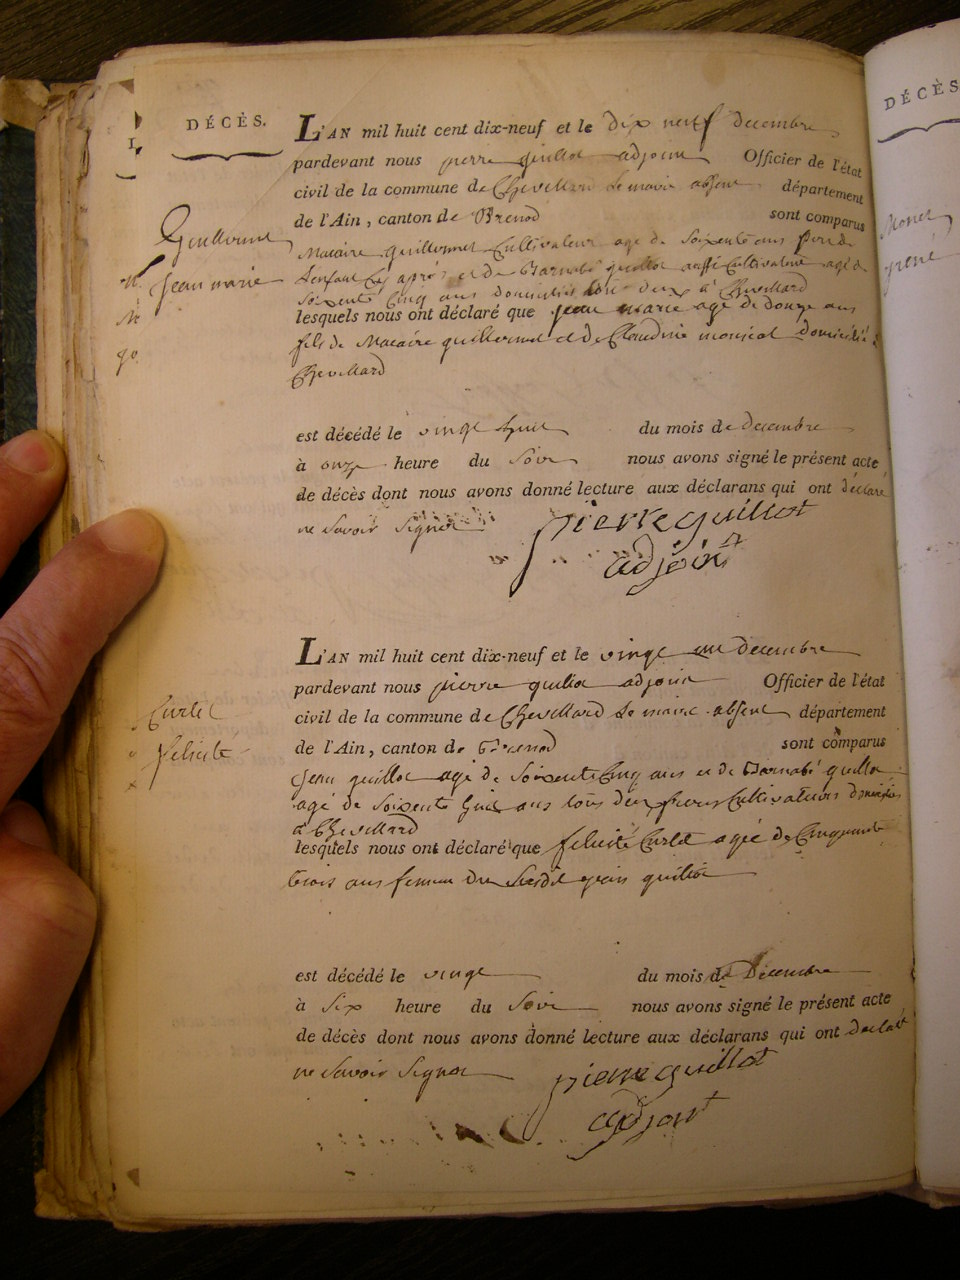 DÉCÈS.
L'AN mil huit cent dix-neuf et le dix neuf decembre
pardevant nous pierre guillot adjoint Officier de l'état
civil de la commune de Chevillard Le maire absent département
de l'Ain, canton de Brenod sont comparus
Guillermet
Jean marie
Macaire guillermet Cultivateur age de Soixente ans pere de
L'enfant Cy après et de Barnabé guillot aussi Cultivateur agé de
Soixente Cinq ans domicilies tous deux a Chevillard
lesquels nous ont déclaré que jean marie age de douze ans
fils de Macaire guillermet et de Claudine moniset domicilié a
Chevillard
est décédé le vingt huit du mois de decembre
à onze heure du Soir nous avons signé le présent acte
de décès dont nous avons donné lecture aux déclarans qui ont déclaré
ne Savoir Signer pierre guillot
adjoint
L'AN mil huit cent dix-neuf et le vingt un decembre
pardevant nous pierre guillot adjoint Officier de l'état
civil de la commune de Chevillard Le maire absent département
de l'Ain, canton de Brenod sont comparus
Curlet
felicité
Jean guillot agé de Soixente Cinq ans et de Barnabé guillot
agé de Soixente huit ans tous deux freres Cultivateurs domicilies
à Chevillard
lesquels nous ont déclaré que felicité Curlet agée de Cinquante
trois ans femme du Susdit jean guillot
est décédé le vingt du mois de Décembre
à Six heure du Soir nous avons signé le présent acte
de décès dont nous avons donné lecture aux déclarans qui ont declaré
ne Savoir Signer pierre guillot
adjoint
DÉCÈS
Monet